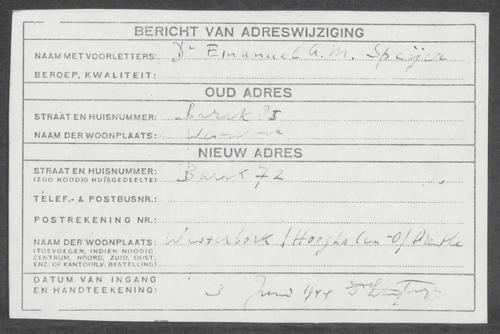 BERICHT VAN ADRESWIJZIGING
NAAM MET VOORLETTERS: Dr Emanuel A. M. Speijer
BEROEP, KWALITEIT:
OUD ADRES
STRAAT EN HUISNUMMER: Barak 85
NAAM DER WOONPLAATS: Westerbork
NIEUW ADRES
STRAAT EN HUISNUMMER: Barak 72
(ZOO NOODIG HUISGEDEELTE)
TELEF.- & POSTBUSNR.:
POSTREKENING NR.:
NAAM DER WOONPLAATS: Westerbork / Hooghalen-O/
(TOEVOEGEN, INDIEN NOODIG
CENTRUM, NOORD, ZUID, OOST,
ENZ. OF KANTOOR V. BESTELLING)
DATUM VAN INGANG
EN HANDTEEKENING: 3 Juni 1944